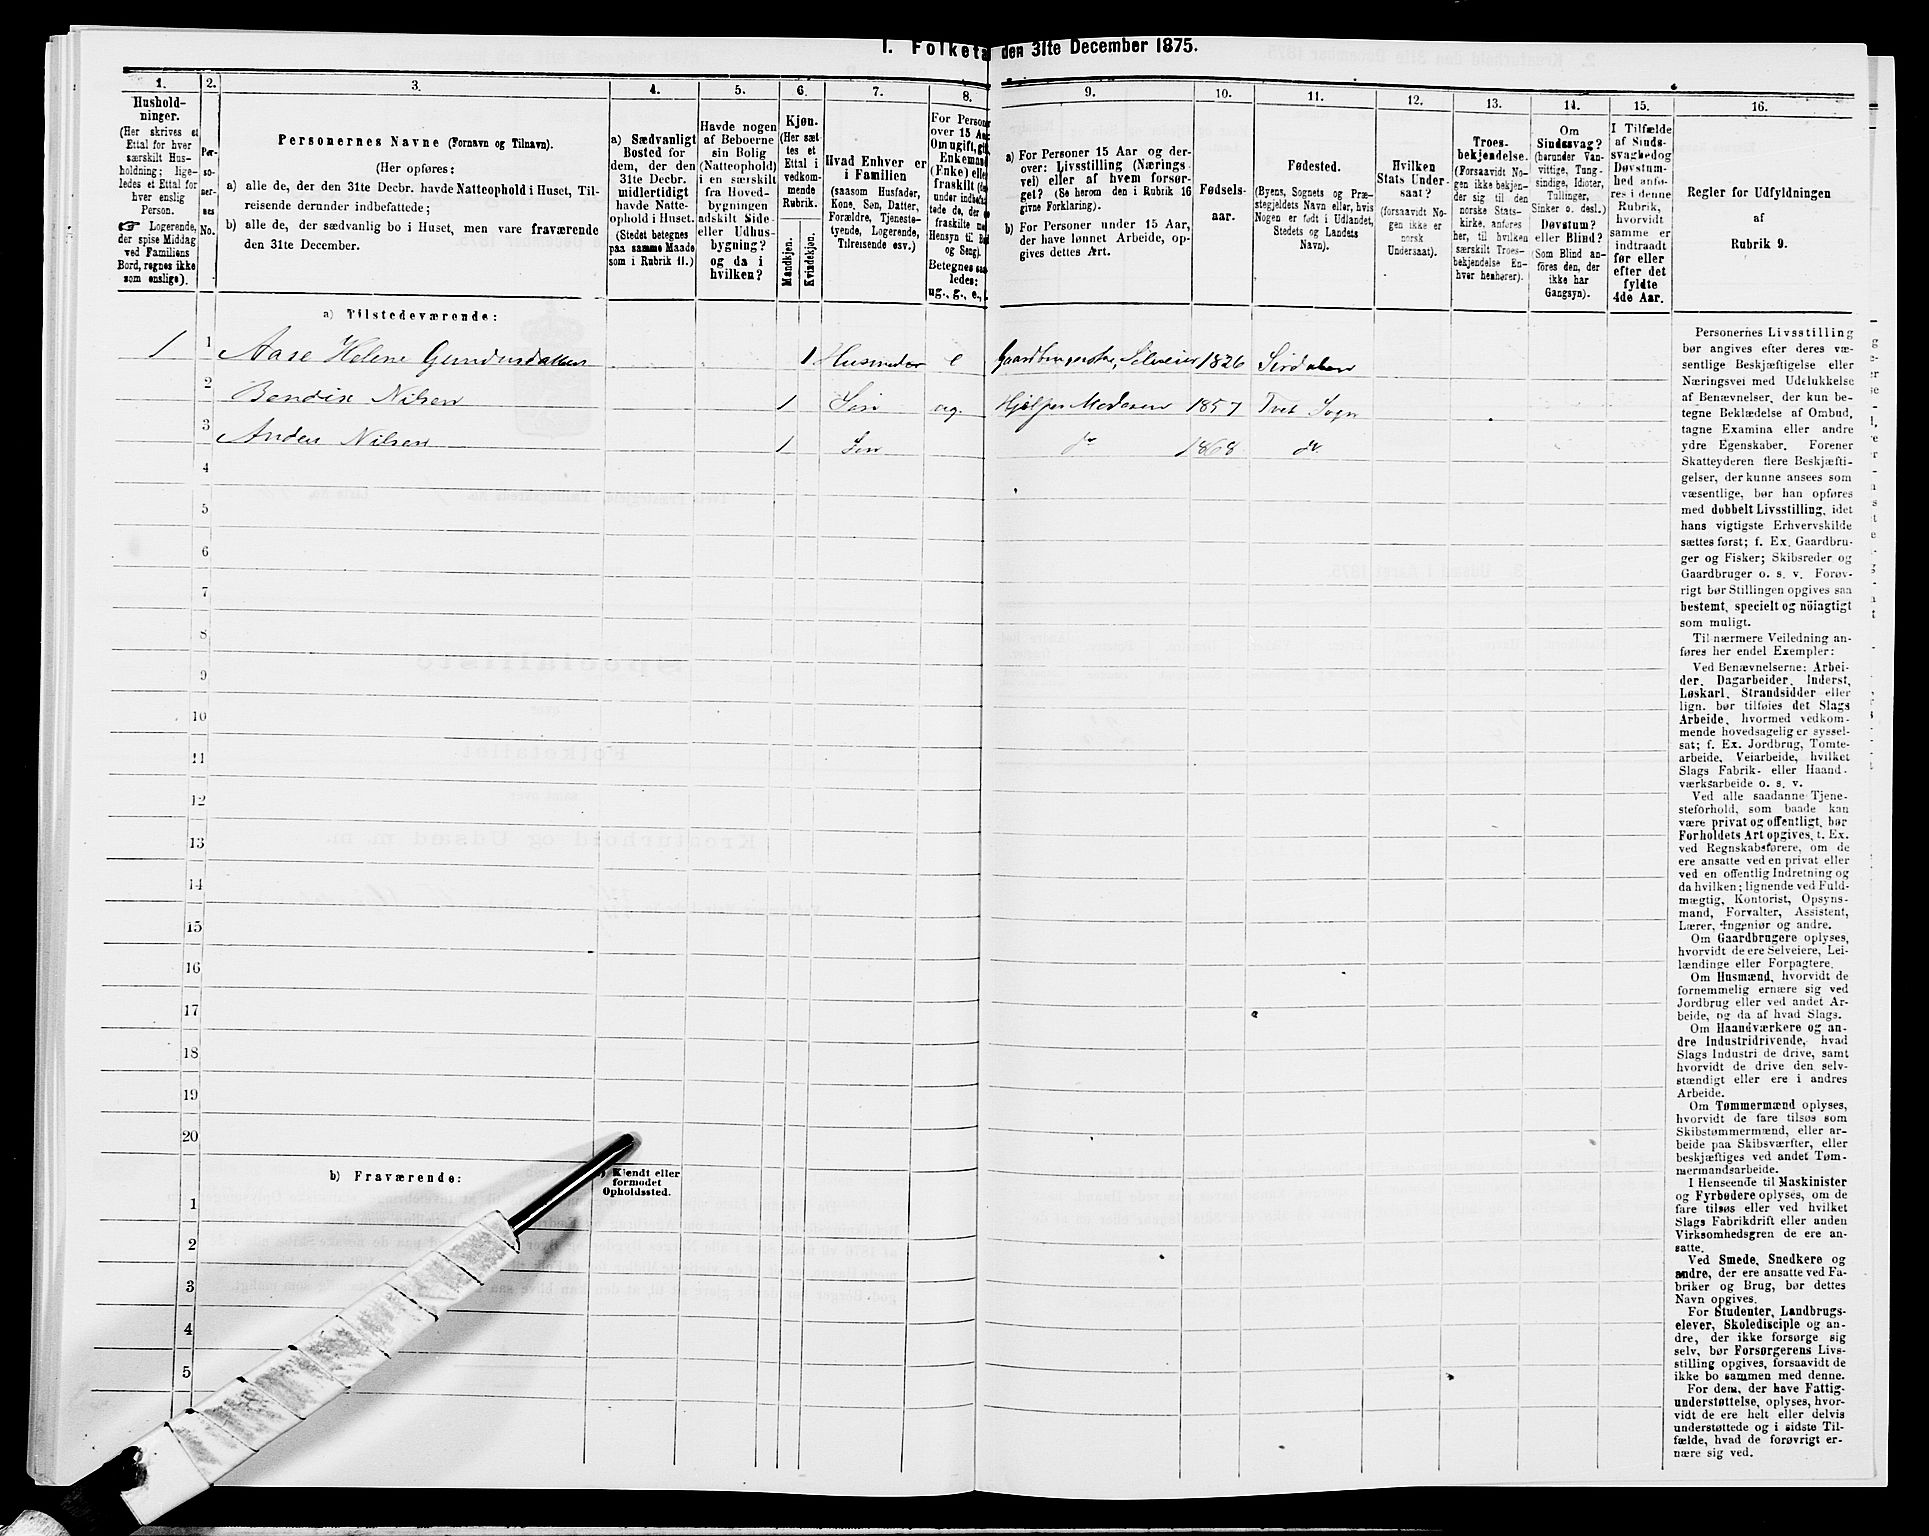 I. Folketa den 31te December 1875.
1.
2.
3.
4.
5.
6.
7.
8.
9.
10.
11.
12.
13.
14.
15.
16.
Hushold-
ninger.
(Her skrives et
Ettal for hver
særskilt Hus-
holdning; lige-
ledes et Ettal for
hver enslig
Person.
☞ Logerende,
der spise Middag
ved Familiens
Bord, regnes ikke
som enslige).
Per-
so-
ner-
nes
No.
Personernes Navne (Fornavn og Tilnavn).
(Her opføres:
a) alle de, der den 31te Decbr. havde Natteophold i Huset, Til-
reisende derunder indbefattede;
b) alle de, der sædvanlig bo i Huset, men vare fraværende
den 31te December.
a) Sædvanligt
Bosted for
dem, der den
31te Decbr.
midlertidigt
havde Natte-
ophold i Huset.
(Stedet betegnes
paa samme Maade
som i Rubrik 11.)
Havde nogen
af Beboerne
sin Bolig
(Natteophold)
i en særskilt
fra Hoved-
bygningen
adskilt Side-
eller Udhus-
bygning?
og da i
hvilken?
Kjøn.
(Her sæt-
tes et
Ettal i
vedkom-
mende
Rubrik.
Mandkjøn.
Kvindekjøn.
Hvad Enhver er
i Familien
(saasom Husfader,
Kone, Søn, Datter,
Forældre, Tjeneste-
tyende, Logerende,
Tilreisende osv.)
For Person
over 15 Aa
Om ugift, gi
Enkemand
(Enke) elle
fraskilt (de
under indbefat
tede de, der e
fraskilte m
Hensyn til B
og Seng).
Betegnes saa
ledes:
ug., g., e.,
a) For Personer 15 Aar og der-
over: Livsstilling (Nærings-
vei) eller af hvem forsør-
get? (Se herom den i Rubrik 16
givne Forklaring).
b) For Personer under 15 Aar,
der have lønnet Arbeide, op-
gives dettes Art.
Fødsels-
aar.
Fødested.
(Byens, Sognets og Præ-
stegjeldets Navn eller, hvis
Nogen er født i Udlandet,
Stedets og Landets
Navn).
Hvilken
Stats Under-
saat?
(forsaavidt No-
gen ikke er
norsk
Undersaat).
Troes-
bekjendelse.
(Forsaavidt No-
gen ikke bekjen-
der sig til den
norske Stats-
kirke, anføres
her, til hvilken
særskilt Troes-
bekjendelse En-
hver henhører).
Om
Sindssvag?
(herunder Van-
vittige, Tung-
sindige, Idioter,
Tullinger,
Sinker o. desl.)
Døvstum?
eller Blind?
(Som Blind an-
føres den, der
ikke har
Gangsyn).
I Tilfælde
af Sinds-
svaghed og
Døvstum-
hed anfø-
res i denne
Rubrik,
hvorvidt
samme er
indtraadt
før eller
efter det
fyldte
4de Aar.
Regler for Udfyldningen
af
Rubrik 9.
a) Tilstedeværende:
1 1 Aase Helene Gundersdatter 1 Husmoder e Gaardbrugerske, Selveier 1826 Sirdalen
2 Bendix Nilsen 1 Søn ug. Hjælper Moderen 1857 Tvet Sogn
3 Anden Nilsen 1 Søn do 1868 do
4
5
6
7
8
9
10
11
12
13
14
15
16
17
18
19
20
b) Fraværende:
b) Kjendt eller
formodet
Opholdssted.
1
2
3
4
5
Personernes Livsstilling
bør angives efter deres væ-
sentlige Beskjæftigelse eller
Næringsvei med Udelukkelse
af Benævnelser, der kun be-
tegne Beklædelse af Ombud,
tagne Examina eller andre
ydre Egenskaber. Forener
Skatteyderen flere Beskjæfti-
gelser, der kunne ansees som
væsentlige, bør han opføres
med dobbelt Livsstilling, idet
hans vigtigste Erhvervskilde
sættes først; f. Ex. Gaardbru-
ger og Fisker; Skibsreder og
Gaardbruger o. s. v. Forøv-
rigt bør Stillingen opgives saa
bestemt, specielt og nöiagtigt
som muligt.
Til nærmere Veiledning an-
føres her endel Exempler:
Ved Benævnelserne: Arbei-
der, Dagarbeider, Inderst,
Løskarl, Strandsidder eller
lign. bør tilføies det Slags
Arbeide, hvormed vedkom-
mende hovedsagelig er syssel-
sat; f. Ex. Jordbrug, Tomte-
arbeide, Veiarbeide, hvilket
Slags Fabrik- eller Haand-
værksarbeide o. s. v.
Ved alle saadanne Tjene-
steforhold, som baade kan
være privat og offentligt, bør
Forholdets Art opgives, t. Ex.
ved Regnskabsførere, om de
ere ansatte ved en privat eller
ved en offentlig Indretning og
da hvilken; lignende ved Fuld-
mægtig, Kontorist, Opsyns-
mand, Forvalter, Assistent,
Lærer, Ingeniør og andre.
Om Gaardbrugere oplyses,
hvorvidt de ere Selveiere, Lei-
lændinge eller Forpagtere.
Om Husmænd, hvorvidt de
fornemmelig ernære sig ved
Jordbrug eller ved andet Ar-
beide, og da af hvad Slags.
Om Haandværkere og an-
dre Industridrivende, hvad
Slags Industri de drive, samt
hvorvidt de drive den selv-
stændigt eller ere i andres
Arbeide.
Om Tømmermænd oplyses,
hvorvidt de fare tilsøs som
Skibstømmermænd, eller ar-
beide paa Skibsværfter, eller
beskjæftiges ved andet Tøm-
mermandsarbeide.
I Henseende til Maskinister
og Fyrbødere oplyses, om de
fare tilsøs eller ved hvilket
Slags Fabrikdrift eller anden
Virksomhedsgren de ere an-
satte.
Ved Smede, Snedkere og
andre, der ere ansatte ved Fa-
briker og Brug, bør dettes
Navn opgives.
For Studenter, Landbrugs-
elever, Skoledisciple og an-
dre, der ikke forsørge sig
selv, bør Forsørgerens Livs-
stilling opgives, forsaavidt de
ikke bo sammen med denne.
For dem, der have Fattig-
understøttelse, oplyses, hvor-
vidt de ere helt eller delvis
understøttede og i sidste Til-
fælde, hvad de forøvrigt er-
nære sig ved.